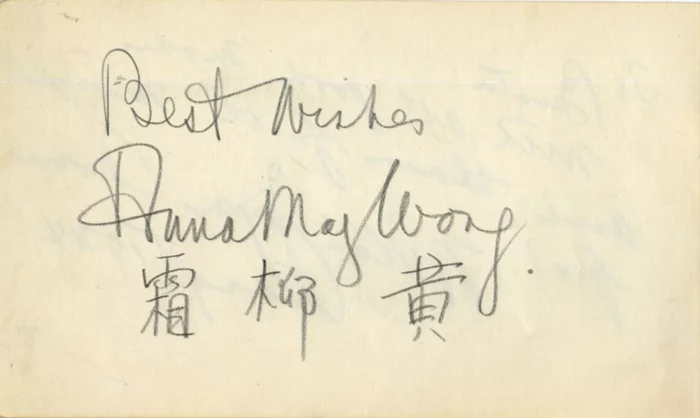 Best Wishes
Anna May Wong.
黄柳霜